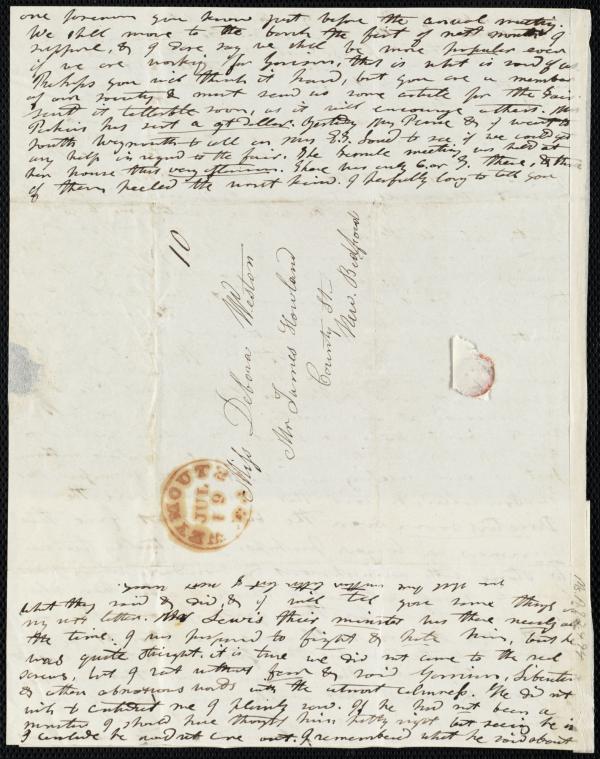 one forenoon you know just before the annual meeting.
We shall move to the beach the first of next month I
suppose, & I dare say we shall be more popular even
if we are working for Garrison, this is what is said of us
Perhaps you will think it hard, but you are a member
of our society & must send us some article for the Fair
send it tollerable soon, as it will encourage others. Mrs
has sent a qt dollar. Yesterday Mary & I went to
South Weymouth to call on Mrs to see if we could get
any help in regard to the fair. The female meeting was held at
her house this very afternoon. There was only 6 or 8 there, & three
of them needed the worst kind. I long to tell you
10
Miss Debora Weston
Mr James Howland
County St
New. Bedford
WEYMOUTH
JUL
19
MS
what they said & did, & I will tell you some things in
my next letter. Mr Lewis their minister was there nearly all
the time. I was prepared to fight & hate him, but he
was quite straight. it is true we did not come to the red
, but I sat without fear & said Garrison, Liberator
& other obnoxious words with the utmost calmness. He did not
wish to contradict me I plainly saw. If he had not been a
minister I should have thought him pretty right but seeing he is
I conclude he would not come out. I remembered what he said about